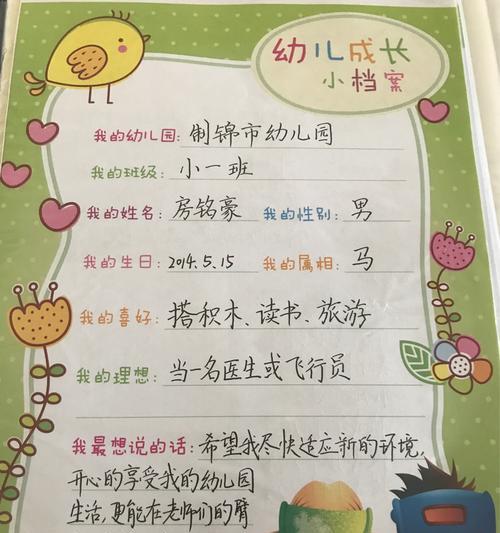 幼儿成长
小档案
我的幼儿园: 制锦市幼儿园
我的班级: 小一班
我的姓名: 房铭豪 我的性别: 男
我的生日: 2014.5.15 我的属相: 马
我的喜好: 搭积木、读书、旅游
我的理想: 当一名医生或飞行员
我最想说的话: 希望我尽快适应新的环境,
开心的享受我的幼儿园
生活,更能在老师们的臂